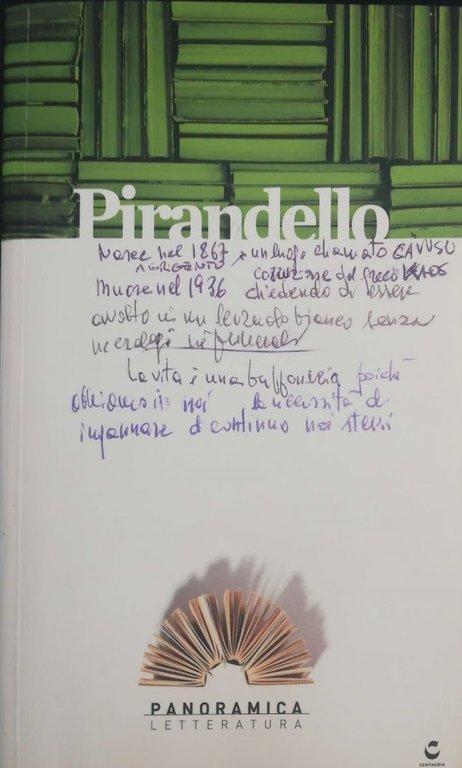 Pirandello
Nasce nel 1867 in un luogo chiamato CAVUSU
AGRIGENTO corruzione del greco KAOS
Muore nel 1936 chiedendo di essere
avvolto in un lenzuolo bianco senza
necrologi né funerali
La vita è una buffoneria poiché
abbiamo in noi la necessità di
ingannare di continuo noi stessi
PANORAMICA
LETTERATURA
CENTAURIA